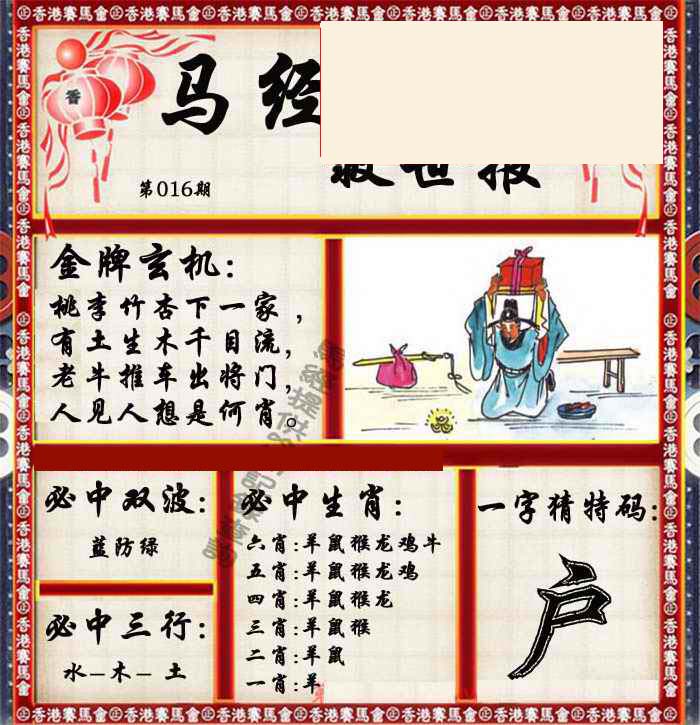 香港賽馬會
马经
救世报
第016期
金牌玄机:
桃李竹杏下一家，
有土生木千目流，
老牛推车出将门，
人见人想是何肖。
必中双波:
蓝防绿
必中三行:
水-木-土
必中生肖:
六肖:羊鼠猴龙鸡牛
五肖:羊鼠猴龙鸡
四肖:羊鼠猴龙
三肖:羊鼠猴
二肖:羊鼠
一肖:羊
一字猜特码:
户